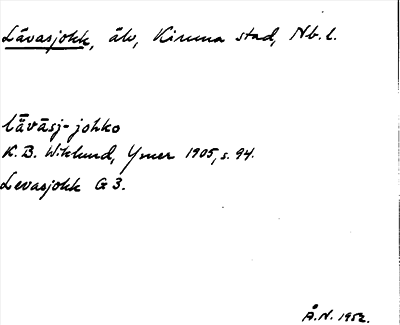 Lávasjokk, älv, Kiruna stad, Nb. l.
lāvāsj-johko
K. B. Wiklund, Ymer 1905, s. 94.
Levasjokk G 3.
Å. N. 1952.